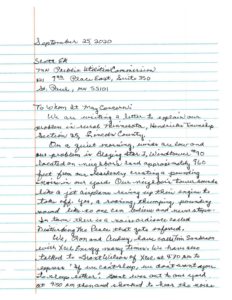 September 25, 2020
Scott Ek
MN Public Utilities Commission
121 7th Place East, Suite 350
St. Paul, MN 55101
To Whom It May Concern:
We are writing a letter to explain our
problem in rural Minnesota, Hendricks Township
Section 29, Lincoln County.
On a quiet morning, winds are low and
our problem is Blazing Star 1, Windtower #90
located on neighbors land approximately 960
feet from our residence creating a pounding
noise in our yard. Our neighbors tower sounds
like a jet airplane reving up their engine to
take off. Yes, a roaring, thumping, pounding
sound like no one can believe and never stops.
In town there is a noise ordinance called
Disturbing the Peace that gets enforced.
We, Ron and Audrey, have called
with Xcel Energy many times. We have also
talked to Wilson of Xcel, at 4:30 AM to
express "If we can't sleep, we don't want you
to sleep either". Scott was out to our yard
at 9:30 am and to hear the noise